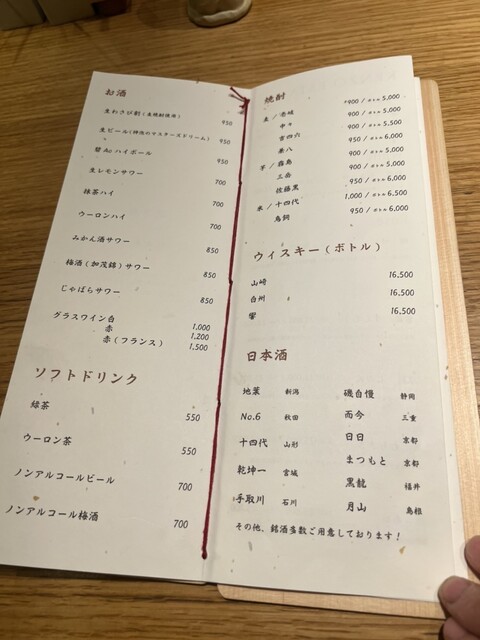 お酒
生わさび割(麦焼酎使用) 950
生ビール(神泡のマスターズドリーム) 950
碧Aoハイボール 950
生レモンサワー 700
抹茶ハイ 700
ウーロンハイ 700
みかん酒サワー 850
梅酒(加茂錦)サワー 850
じゃばらサワー 850
グラスワイン白 1,000
赤 1,200
赤(フランス) 1,500
ソフトドリンク
緑茶 550
ウーロン茶 550
ノンアルコールビール 700
ノンアルコール梅酒 700
焼酎
麦/壱岐 900/ボトル5,000
中々 900/ボトル5,000
吉四六 900/ボトル5,500
兼八 950/ボトル6,000
芋/霧島 900/ボトル5,000
三岳 900/ボトル5,000
佐藤黒 950/ボトル6,000
米/十四代 1,000/ボトル6,500
鳥飼 950/ボトル6,000
ウイスキー(ボトル)
山崎 16,500
白州 16,500
響 16,500
日本酒
地葉 新潟
No.6 秋田
十四代 山形
乾坤一 宮城
手取川 石川
磯自慢 静岡
而今 三重
日日 京都
まつもと 京都
黒龍 福井
月山 島根
その他、銘酒多数ご用意しております!